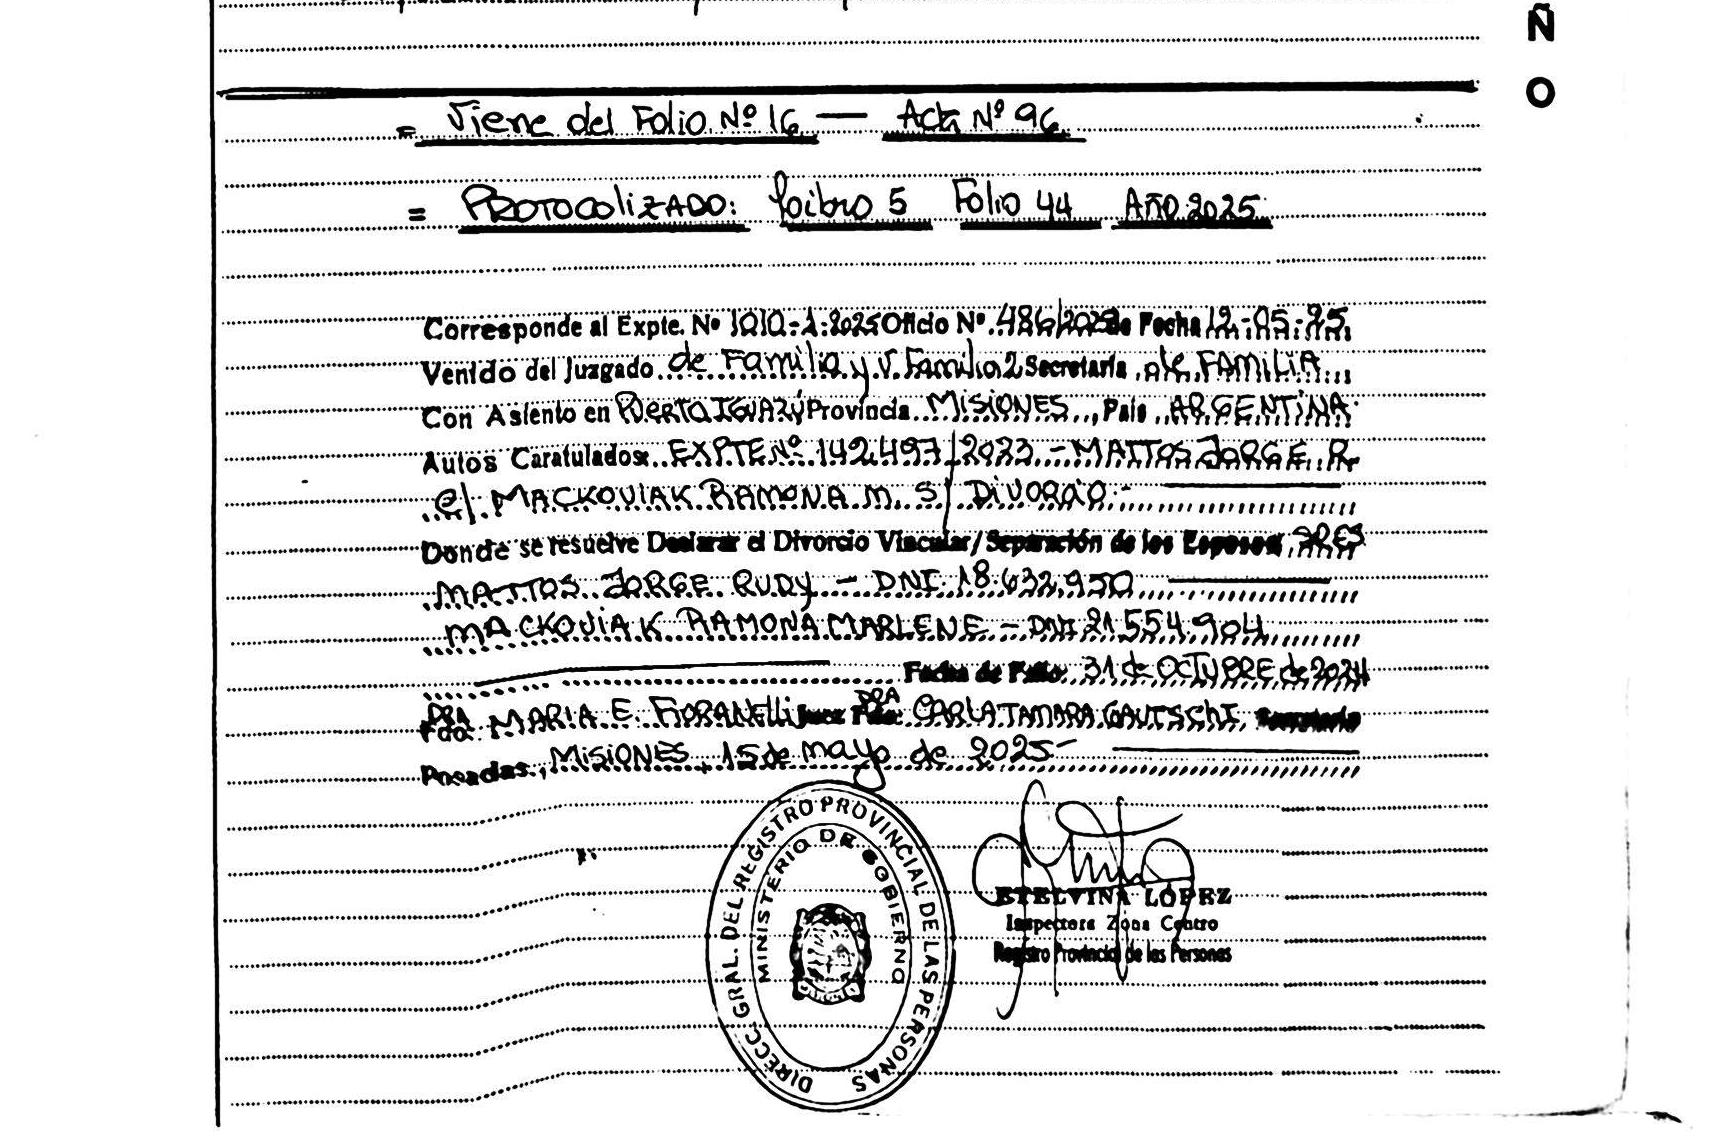 Ñ
O
= Viene del Folio Nº 16 — Acta Nº 96
= PROTOCOLIZADO: Libro 5 Folio 44 AÑO 2025
Corresponde al Expte. Nº 1010-1-2025 Oficio Nº 486/2025 de Fecha 12-05-25
Venido del Juzgado de Familia y V. Familia 2 Secretaría de FAMILIA
Con Asiento en PUERTO IGUAZÚ Provincia MISIONES, País ARGENTINA
Autos Caratulados: EXPTE Nº 142.497/2023 - MATTOS JORGE R.
C/ MACKOVIAK RAMONA M. S/ DIVORCIO.-
Donde se resuelve Declarar el Divorcio Vincular/Separación de los Esposos SRES
MATTOS JORGE RUDY - DNI 18.632.950
MACKOVIAK RAMONA MARLENE - DNI 21.554.904
Fecha de Fallo: 31 de OCTUBRE de 2024
Fdo.: DRA MARIA E. FIORANELLI Juez Fdo: DRA CARLA TAMARA GAUTSCHI Secretaria
Posadas, MISIONES, 15 de mayo de 2025-
DIRECC. GRAL. DEL REGISTRO PROVINCIAL DE LAS PERSONAS
MINISTERIO DE GOBIERNO
ETELVINA LÓPEZ
Inspectora Zona Centro
Registro Provincial de las Personas